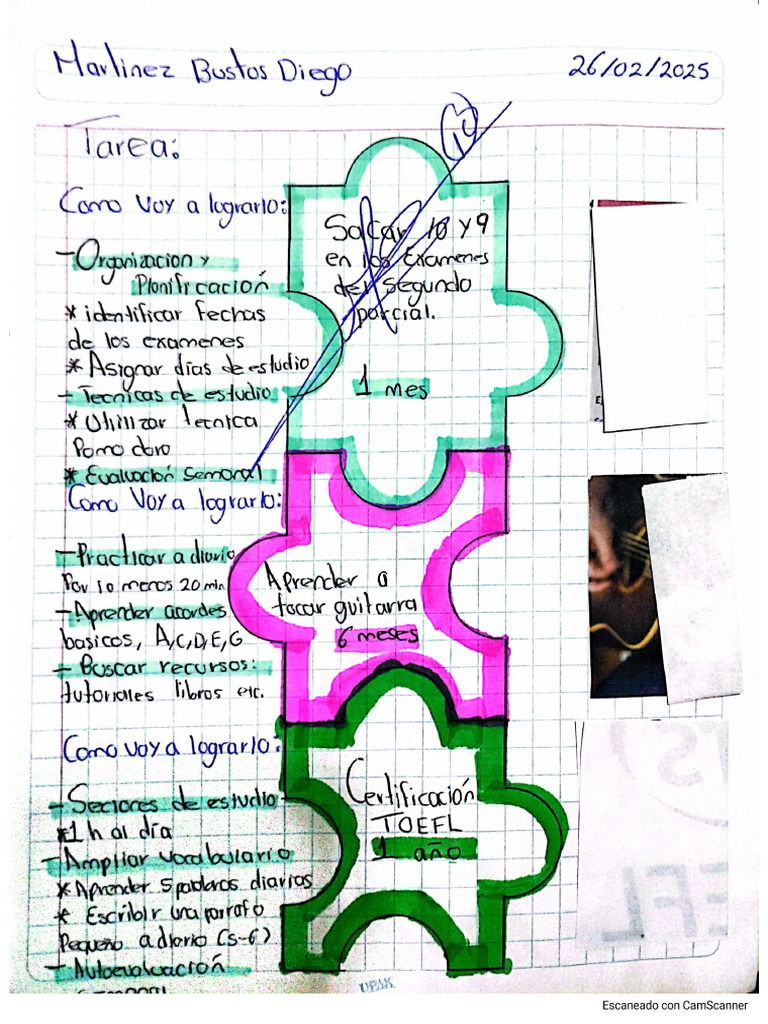 Martinez Bustos Diego
26/02/2025
Tarea:
Como Voy a lograrlo:
- Organizacion y
Planificación
* identificar fechas
de los examenes
* Asignar días de estudio
- Tecnicas de estudio
* Utilizar Tecnica
Pomodoro
* Evaluación Semanal
Sacar 10 y 9
en los Examenes
del segundo
parcial.
1 mes
Como Voy a lograrlo:
- Practicar a diario
Por lo menos 20 min
- Aprender acordes
basicos, A,C,D,E,G
- Buscar recursos:
tutoriales libros etc.
Aprender a
tocar guitarra
6 meses
Como voy a lograrlo:
- Seciones de estudio
*1 h al día
- Ampliar vocabulario
* Aprender 5 palabras diarias
* Escribir una parrafo
Pequeño a diario (5-6)
- Autoevaluación
Certificación
TOEFL
1 año
Escaneado con CamScanner